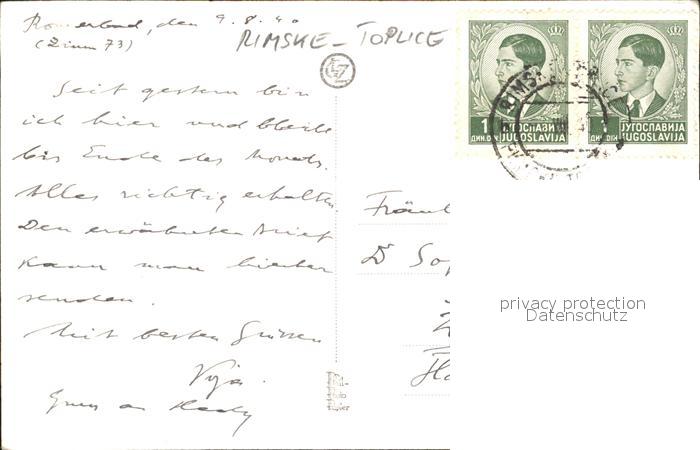 Römerbad, den 9.8.40
(Zimm 73)
RIMSKE-TOPLICE
Seit gestern bin
ich hier und bleibe
bis Ende des Monats.
Alles richtig erhalten.
Den erwähnten Brief
kann man hierher
senden.
Mit besten Grüssen
Gruss an Hedy
Fräul
D Sop
1 ЈУГОСЛАВИЈА
ДИН. DIN JUGOSLAVIJA
1 ЈУГОСЛАВИЈА
ДИН. DIN JUGOSLAVIJA
RIMSK
privacy protection
Datenschutz